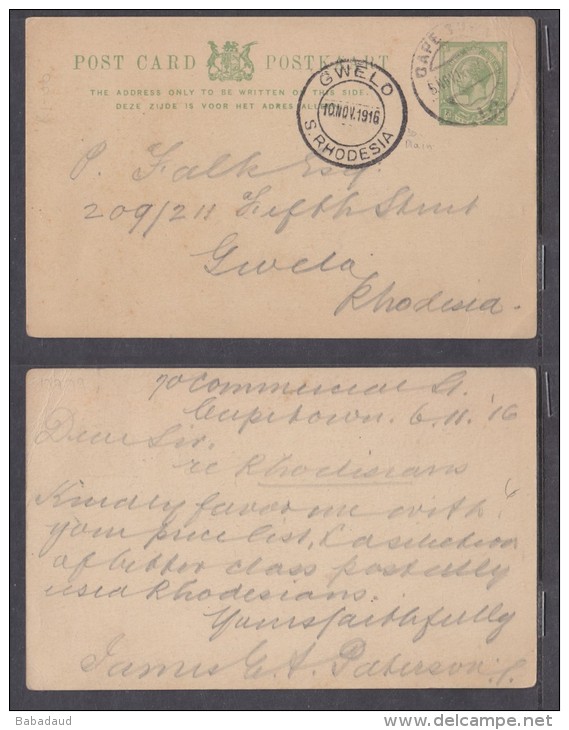 POST CARD POSTKAART
THE ADDRESS ONLY TO BE WRITTEN ON THIS SIDE.
DEZE ZIJDE IS VOOR HET ADRES
CAPE
GWELO
10.NOV.1916
S. RHODESIA
Plain
P. Falk Esq.
209/211 Fifth Street
Gwelo
Rhodesia.
70 Commercial St.
Capetown. 6.11.'16
Dear Sir.
re Rhodesians
Kindly favor me with
your price list, & a selection
of better class postally
used Rhodesians.
Yours faithfully
James A. Paterson
Babadaud
delcampe.net